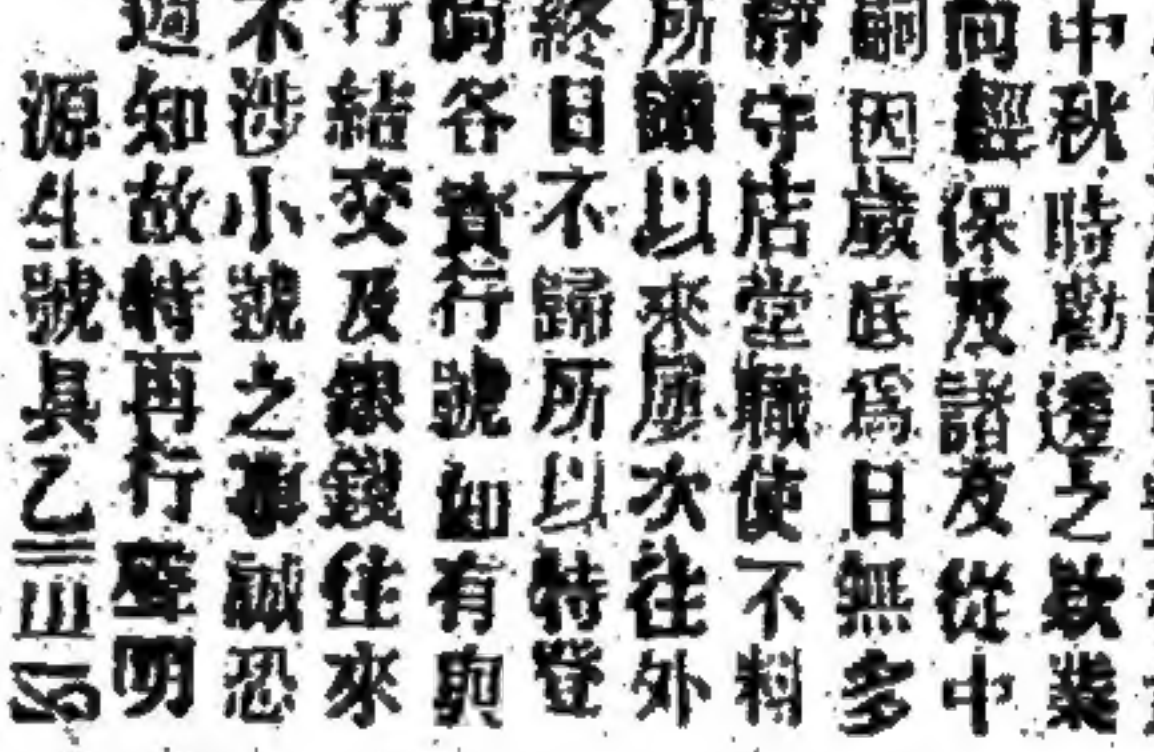 中秋時勸透之款業
向經保及諸友從中
嗣因歲底為日無多
靜守店堂職使不料
所顧以來屢次往外
終日不歸所以特登
倘各寶行號如有與
行結交及銀錢往來
不涉小號之事誠恐
週知故特再行聲明
源生號具乙